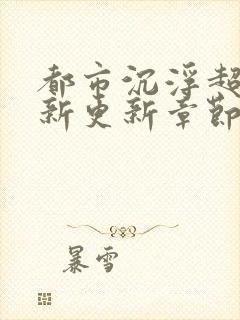 都市沉浮超
新更新章節
暴雪